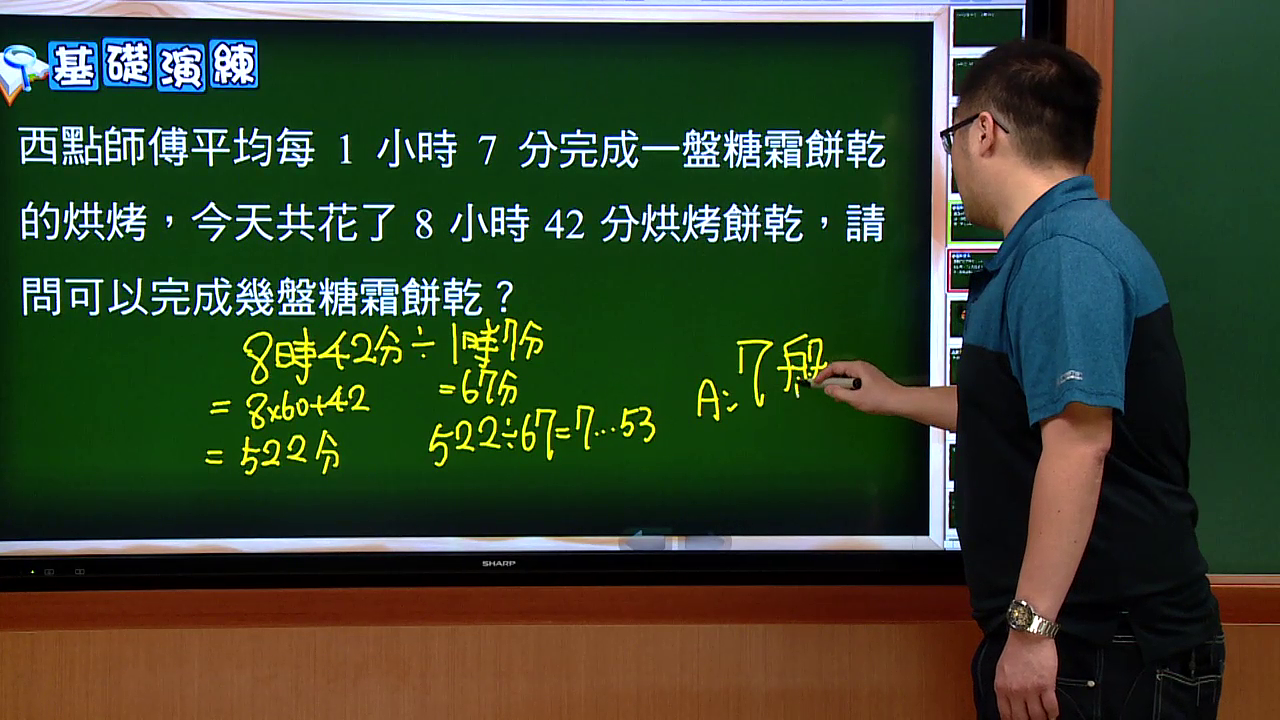 基礎演練
西點師傅平均每 1 小時 7 分完成一盤糖霜餅乾
的烘烤，今天共花了 8 小時 42 分烘烤餅乾，請
問可以完成幾盤糖霜餅乾？
8時42分÷1時7分
= 8x60+42 =67分
= 522分 522÷67=7…53
A: 7
SHARP